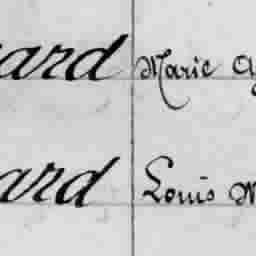 ard Marie
ard Louis